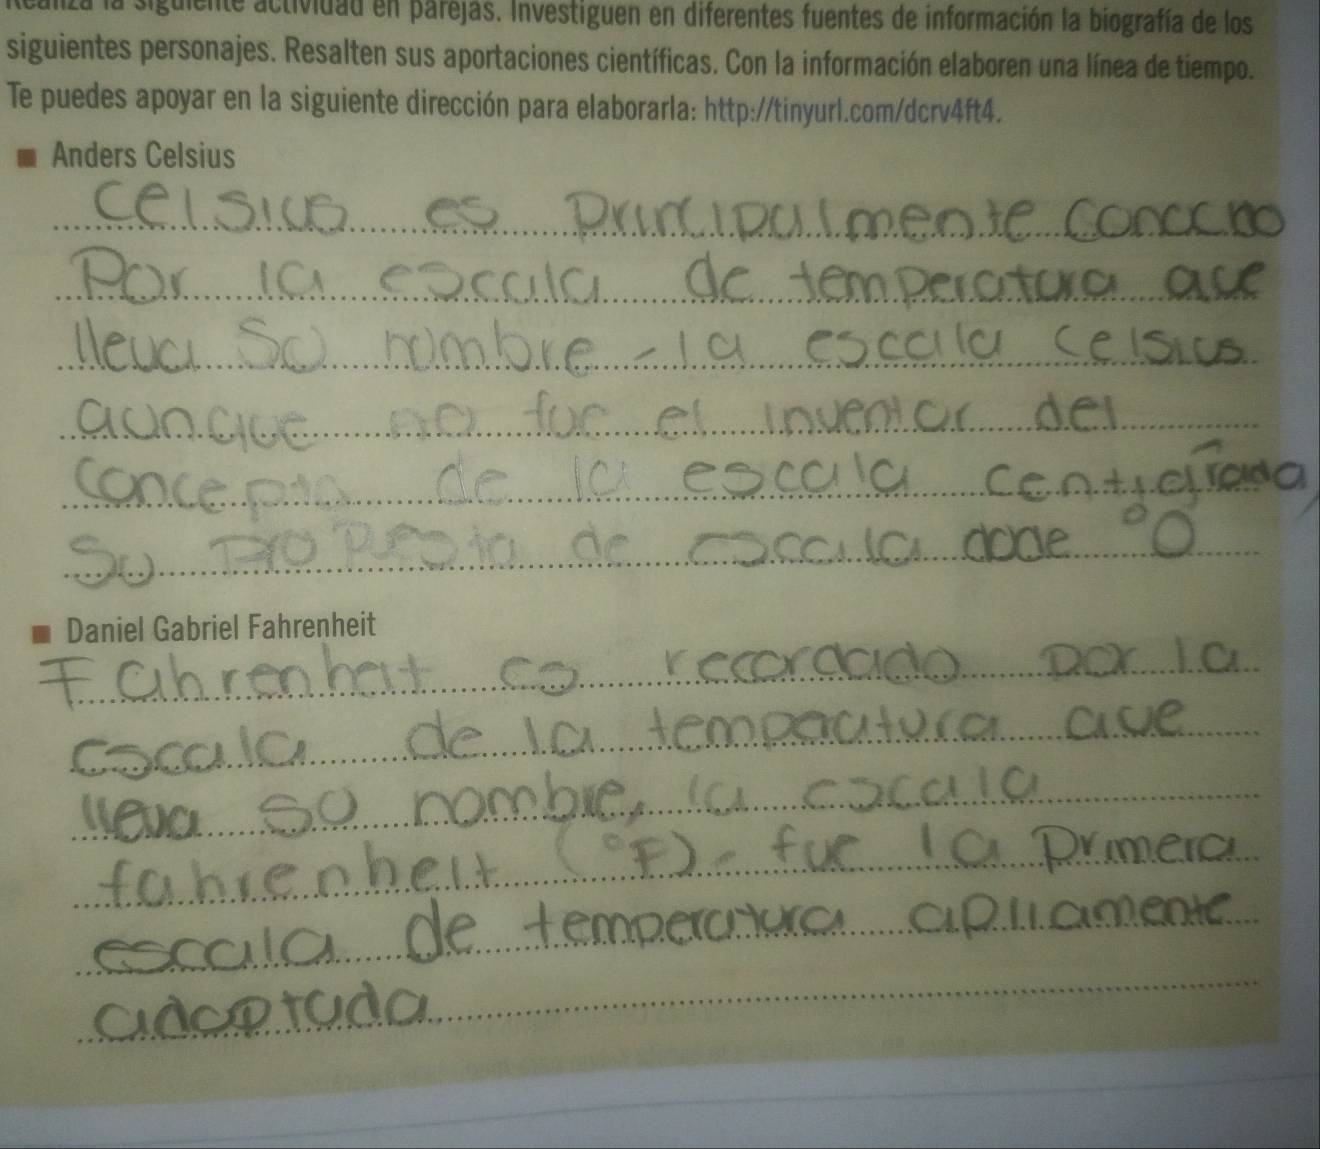 Realiza la siguiente actividad en parejas. Investiguen en diferentes fuentes de información la biografía de los
siguientes personajes. Resalten sus aportaciones científicas. Con la información elaboren una línea de tiempo.
Te puedes apoyar en la siguiente dirección para elaborarla: http://tinyurl.com/dcrv4ft4.
Anders Celsius
Celsius es principalmente
Por la escala de temperatura que
lleva su nombre - la escala celsius
aunque no fue el inventor del
concepto de la escala centigrada
Su propuesta de escala °0
Daniel Gabriel Fahrenheit
Fahrenheit es recordado por la
escala de la temperatura que
lleva su nombre, la escala
fahrenheit (°F) - fue la primera
escala de temperatura apliamente
adoptada